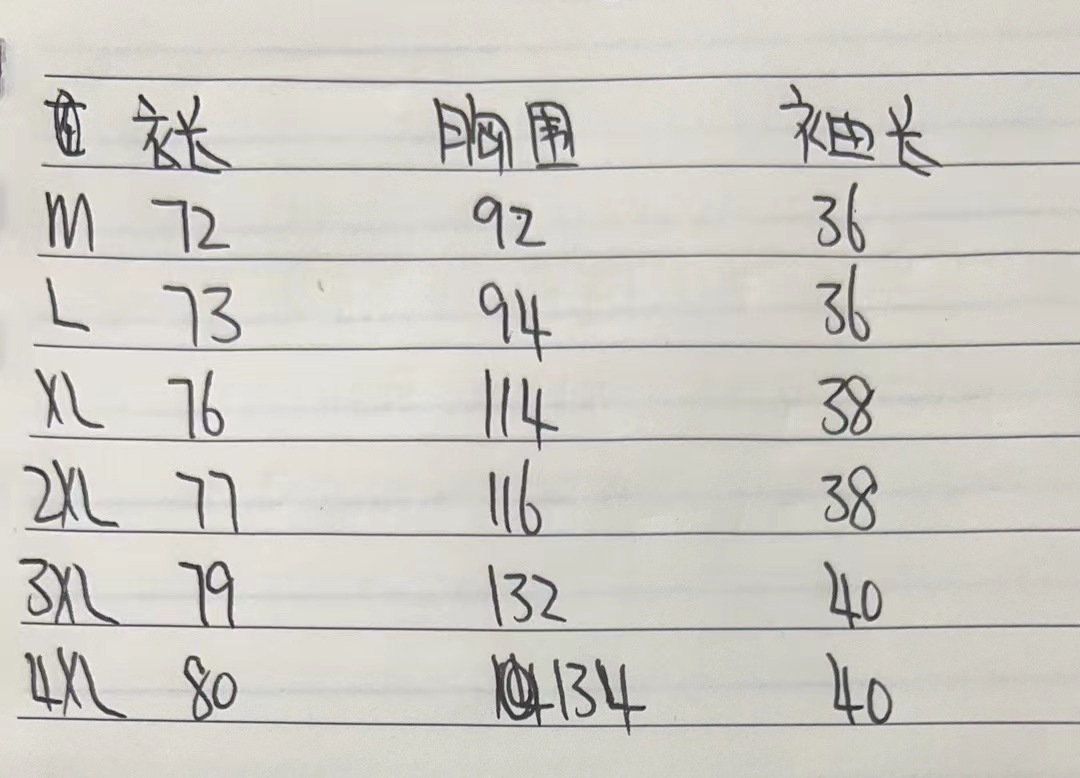 衣长 胸围 袖长
M 72 92 36
L 73 94 36
XL 76 114 38
2XL 77 116 38
3XL 79 132 40
4XL 80 134 40